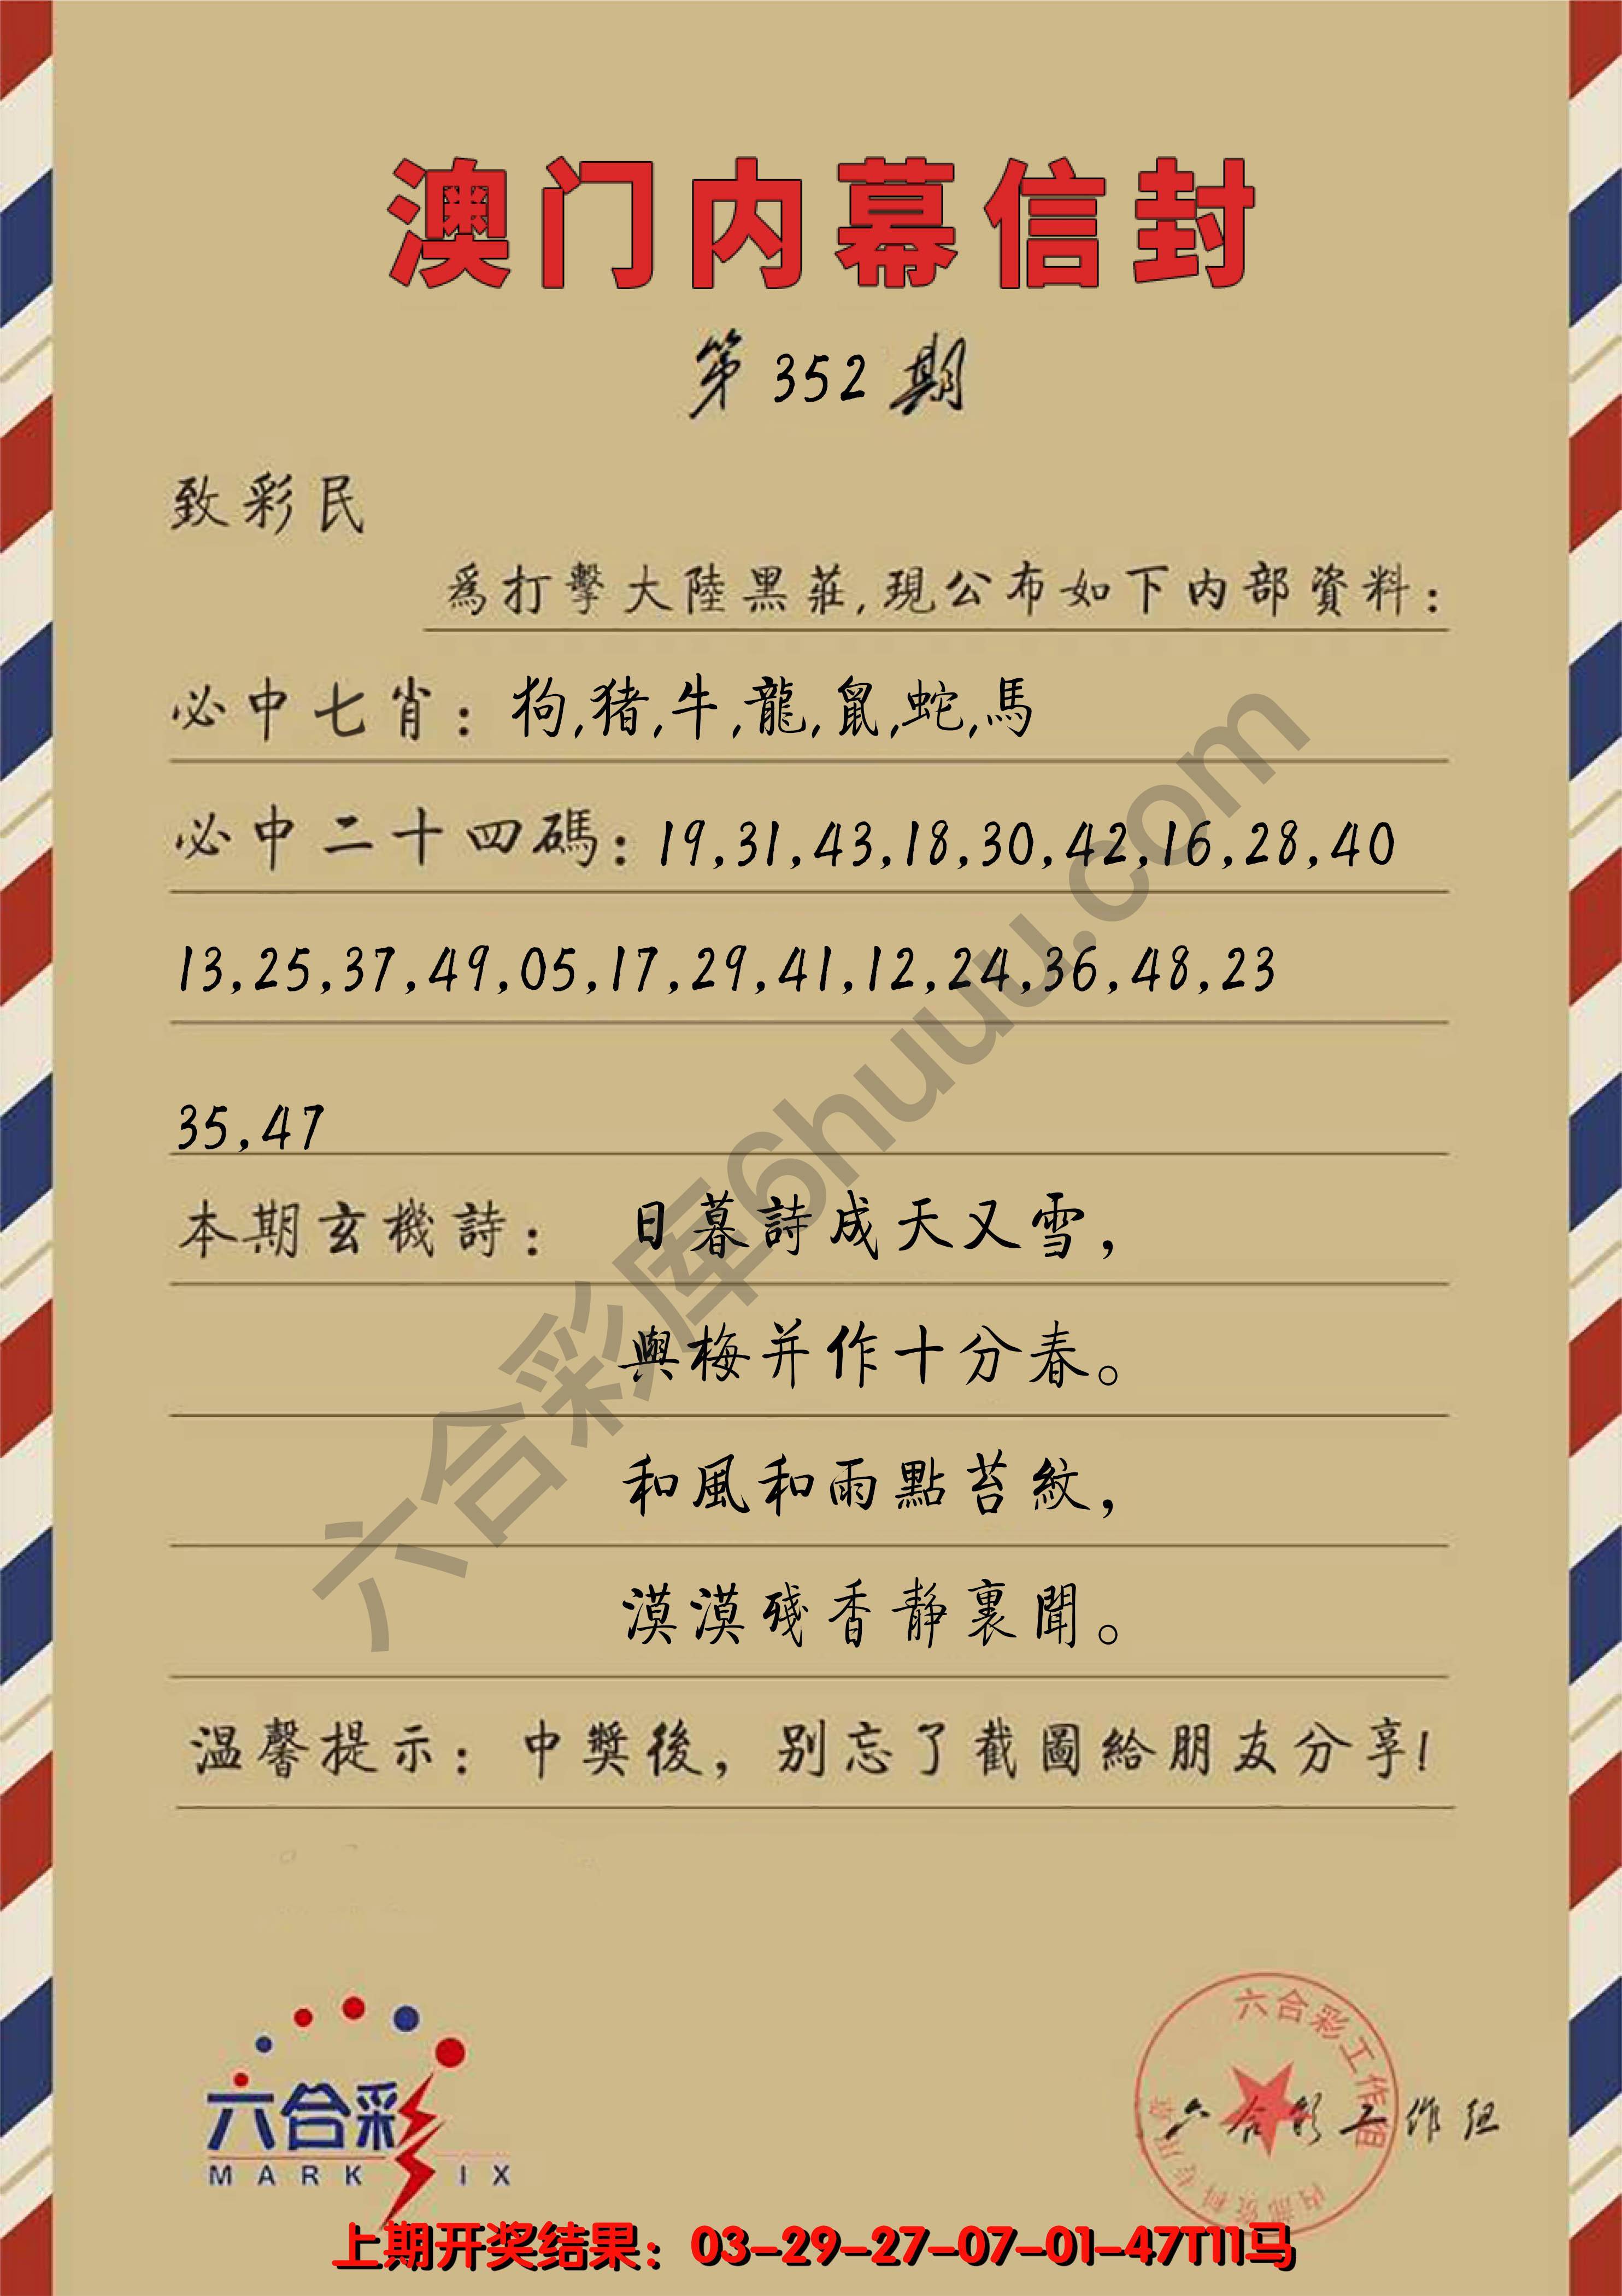 澳门内幕信封
第352期
致彩民
爲打擊大陸黑莊,現公布如下内部資料:
必中七肖:狗,猪,牛,龍,鼠,蛇,馬
必中二十四碼:19,31,43,18,30,42,16,28,40
13,25,37,49,05,17,29,41,12,24,36,48,23
35,47
本期玄機詩: 日暮詩成天又雪,
與梅并作十分春。
和風和雨點苔紋,
漠漠殘香静裏聞。
温馨提示:中獎後,别忘了截圖給朋友分享!
六合彩库6huuu.com
六合彩
MARK IX
六合彩工作组
六合彩工作组
上期开奖结果:03-29-27-07-01-47T11马